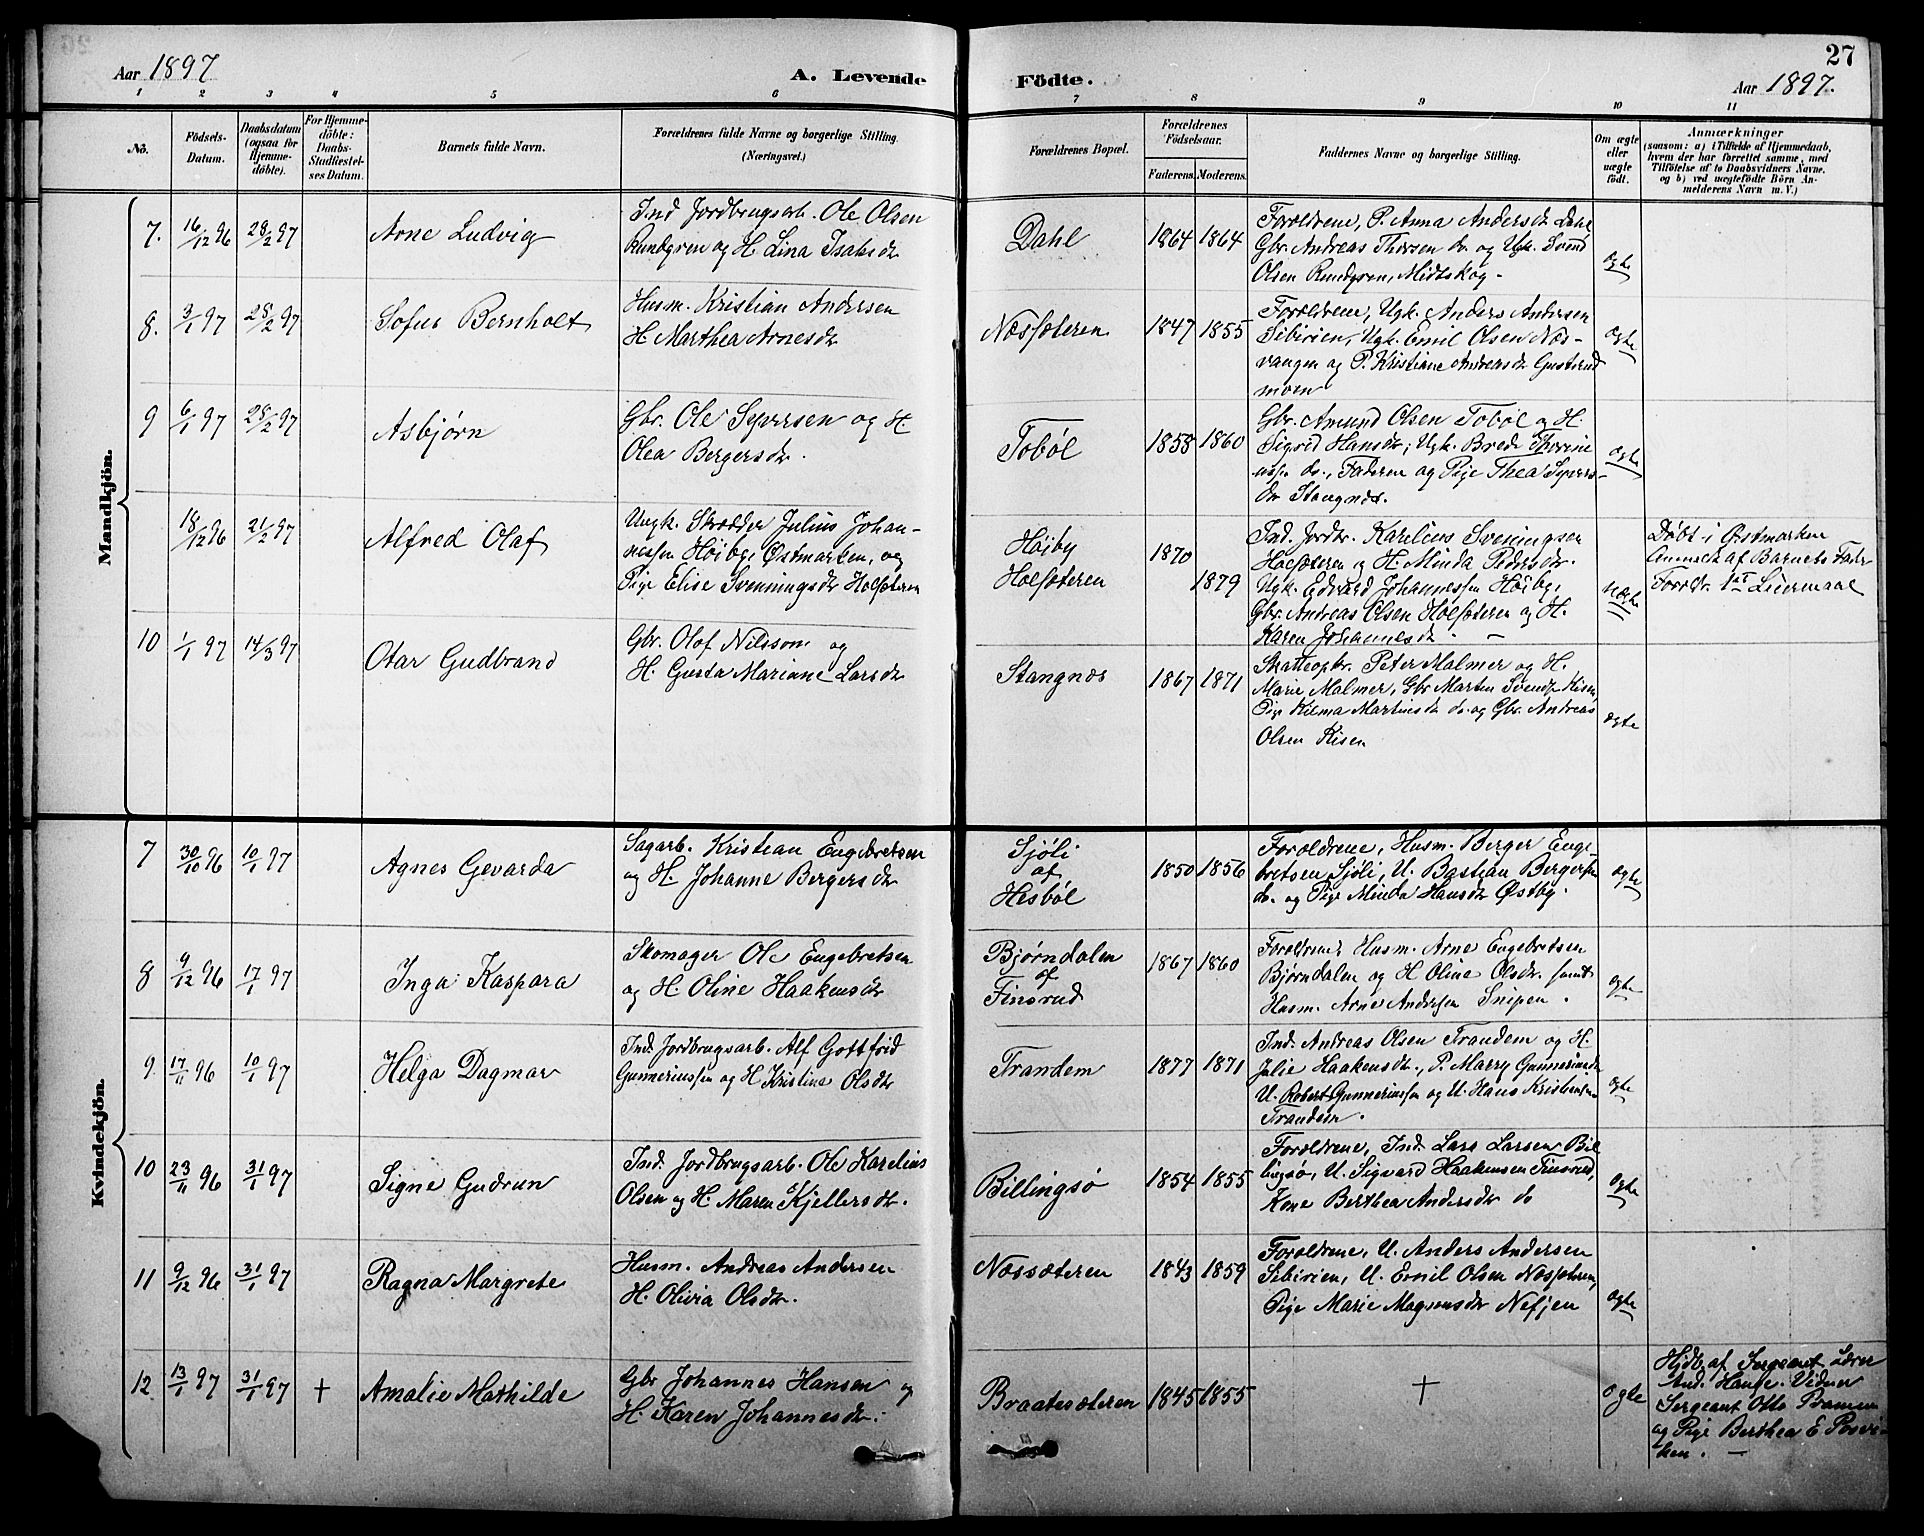 27
Aar 1897
A. Levende Födte.
Aar 1897.
1 2 3 4 5 6 7 8 9 10 11
No.
Födsels-
Datum.
Daabsdatum
(ogsaa for
Hjemme-
döbte).
For Hjemme-
döbte:
Daabs-
Stadfæstel-
ses Datum.
Barnets fulde Navn.
Forældrenes fulde Navne og borgerlige Stilling.
(Næringsvei.)
Forældrenes Bopæl.
Forældrenes
Födselsaar.
Faderens. Moderens.
Faddernes Navne og borgerlige Stilling.
Om ægte
eller
uægte
födt.
Anmærkninger
(saasom: a) i Tilfælde af Hjemmedaab,
hvem der har forrettet samme, med
Tilföielse af to Daabsvidners Navne,
og b) ved uægtefödte Börn An-
melderens Navn m. V.)
Mandkjön.
7. 16/12 96 28/2 97
Arne Ludvig
Ind Jordbrugsarb. Ole Olsen
Rundgren og H. Lina Isaksdr
Dahl
1864 1864
Forældrene, P. Anna Andersdr Dahl
Gbr. Andreas Thorsen do. og Ugk. Svend
Olsen Rundgren, Midtskog -
ægte
8. 3/1 97 28/2 97
Sofus Bernholt
Husm. Kristian Andersen
H. Marthea Arnesdr
Næssæteren
1847 1855
Forældrene, Ugk. Anders Andersen
Sibirien, Ugk. Emil Olsen Næs-
vangen og P. Kristiane Andreasdr Gusterud
moen
ægte
9 6/1 97 28/2 97
Asbjørn
Gbr. Ole Syversen og H.
Olea Bergersdr.
Tobøl
1858 1860
Gbr. Amund Olsen Tobøl og H.
Sigrid Hansdr; Ugk. Brede
do., Faderen og Pige Thea Syvers-
dr Stangnæs.
ægte
18/12 96 21/2 97
Alfred Olaf
Ungk. Skrædder Julius Johan-
nessen Høiby, Østmarken, og
Pige Elise Svenningsdr Holsæteren
Høiby
Holsæteren
1870
1879
Ind. Jordbr. Karelius Sveningsen
Holsæteren og H. Minda Pedersdr.
Ugk. Edvard Johannessen Høiby,
Gbr. Andreas Olsen Holsæteren og H.
Karen Johannesdr. -
uægte
Døbt i Østmarken
Anmeldt af Barnets Fader
Forældr. 1st Leiermaal
10 1/1 97 14/3 97
Otar Gudbrand
Gbr. Olof Nilsson og
H. Gusta Mariane Larsdr
Stangnæs
1867 1871
Skatteopkr. Peter Malmer og H.
Marie Malmer, Gbr Marten Svends. Kisen
Pige Hilma Martinsdr do. og Gbr. Andreas
Olsen Kisen
ægte
Kvindekjön.
7 30/10 96 10/1 97
Agnes Gevarda
Sagarb. Kristian Engebretsen
og H. Johanne Bergersdr
Sjøli
af
Hesbøl
1850 1856
Forældrene, Husm. Berger Enge-
bretsen Sjøli, U. Bastian Bergersen
do. og Pige Minda Hansdr Østby.
ægte
8 9/12 96 17/1 97
Inga Kaspara
Skomager Ole Engebretsen
og H. Oline Haakensdr
Bjørndalen
af
Finsrud
1867 1860
Forældrene, Husm. Arne Engebretsen
Bjørndalen og H Oline Olsdr. samt
Husm. Arne Andersen Snipen.
ægte
9. 17/11 96 10/1 97
Helga Dagmar
Ind. Jordbrugsarb. Alf Gottfrid
Gunneriussen og H Kristine Olsdr
Trandem
1877 1871
Ind. Andreas Olsen Trandem og H.
Julie Haakensdr., P. Marry Gunneriusdr
U. Robert Gunneriussen og U. Hans Kristensen
Trandem.
ægte
10 23/11 96 31/1 97
Signe Gudrun
Ind. Jordbrugsarb. Ole Karelius
Olsen og H. Maren Kjellersdr.
Billingsø
1854 1855
Forældrene, Ind. Lars Larsen Bil-
lingsø, U. Sigvard Haakensen Finsrud,
Kone Berthea Andersdr do
ægte
11 9/12 96 31/1 97
Ragna Margrete
Husm. Andreas Andersen
H. Olivia Olsdr.
Næssæteren
1843 1859
Forældrene, U. Anders Andersen
Sibirien, U. Emil Olsen Næssæteren,
Pige Marie Magnusdr Nefjen
ægte
12 13/1 97 31/1 97 +
Amalie Mathilde
Gbr Johannes Hansen og
H. Karen Johannesdr.
Braatesæteren
1845 1855
+
ægte
Hjdb. af Sergeant Lærer
And. Hauge. Vidner
Sergeant Otto
og Pige Berthea E